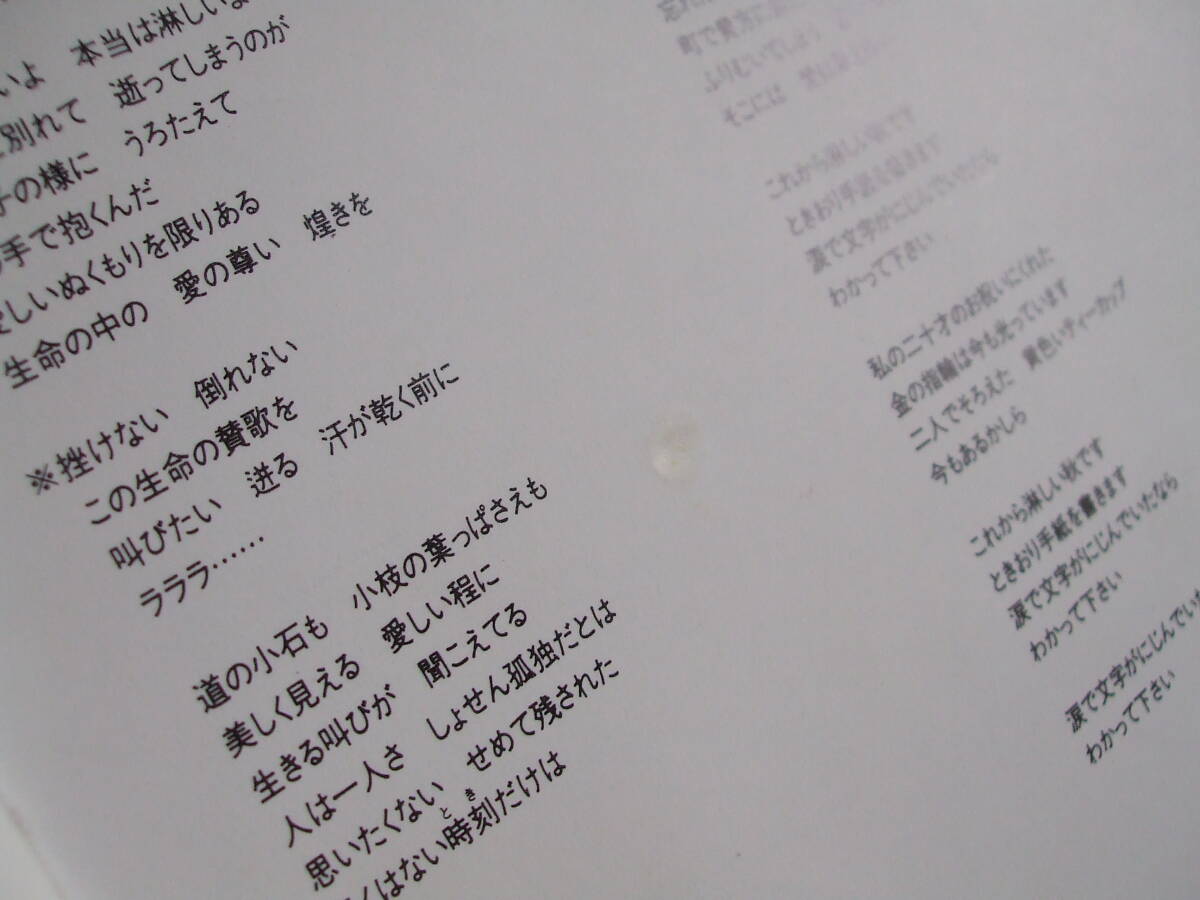 いよ 本当は淋しい
別れて 逝ってしまうのが
子の様に うろたえて
手で抱くんだ
しいぬくもりを限りある
生命の中の 愛の尊い 煌きを
※挫けない 倒れない
この生命の賛歌を
叫びたい 迸る 汗が乾く前に
ラララ……
道の小石も 小枝の葉っぱさえも
美しく見える 愛しい程に
生きる叫びが 聞こえてる
人は一人さ しょせん孤独だとは
思いたくない せめて残された
くはない時刻だけは
とき
町で貴方に
ふりむいてしまう
そこには
これから淋しい秋です
ときおり手紙を書きます
涙で文字がにじんでいたなら
わかって下さい
私の二十才のお祝いにくれた
金の指輪は今も光っています
二人でそろえた 黄色いティーカップ
今もあるかしら
これから淋しい秋です
ときおり手紙を書きます
涙で文字がにじんでいたなら
わかって下さい
涙で文字がにじんでいた
わかって下さい